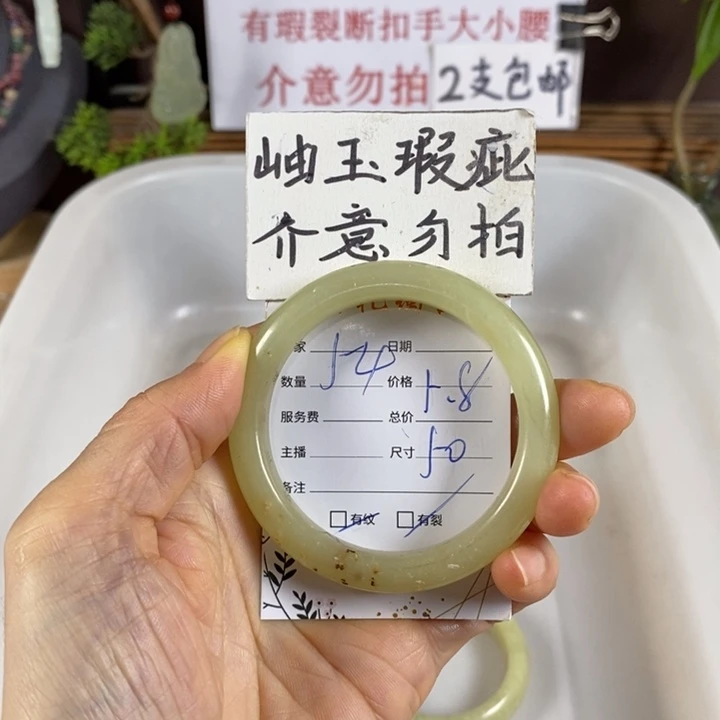 有瑕裂断扣手大小腰
介意勿拍 2支包邮
岫玉瑕疵
介意勿拍
家 日期
数量 54 价格 5.8
服务费 总价
主播 尺寸 50
备注
有纹 有裂